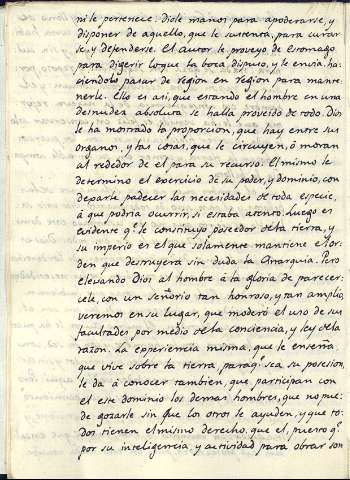 ni le pertenece: diole manos para apoderarse, y
disponer de aquello, que le sustenta, para curar
se, y defenderse. El autor le proveyo de Estomago
para digerir loque la boca, dispuso, y le envia, ha
siendolo pasar de region en region para mante
nerle. Ello es asi, que estando el hombre en una
desnudez absoluta se halla proveido de todo. Dios
le ha mostrado la proporcion, que hay entre sus
organos, y las cosas, que le circuyen, ò moran
al rededor de el para su recurso. El mismo le
determino el exercicio de su poder, y dominio, con
deparle padecer las necesidades de toda especie,
à que podria ocurrir, si estaba atento. Luego es
evidente q.e le constituyo poseedor dela tierra, y
su imperio es el que solamente mantiene el or
den que destruyera sin duda la Anarquia. Pero
elevando Dios al hombre à la gloria de parecer
cele, con un señorio tan honroso, y tan amplio,
veremos en su lugar, que moderó el uso de sus
facultades por medio dela conciencia, y ley dela
razon. La experiencia misma, que le enseña
que vive sobre la tierra, paraq.e sea su posesion,
le da à conocer tambien, que participan con
el este dominio los demas hombres, que no pue
de gozarle sin que los otros le ayuden, y que to
dos tienen el mismo derecho, que el, puesto q.e
por su inteligencia, y actividad para obrar son